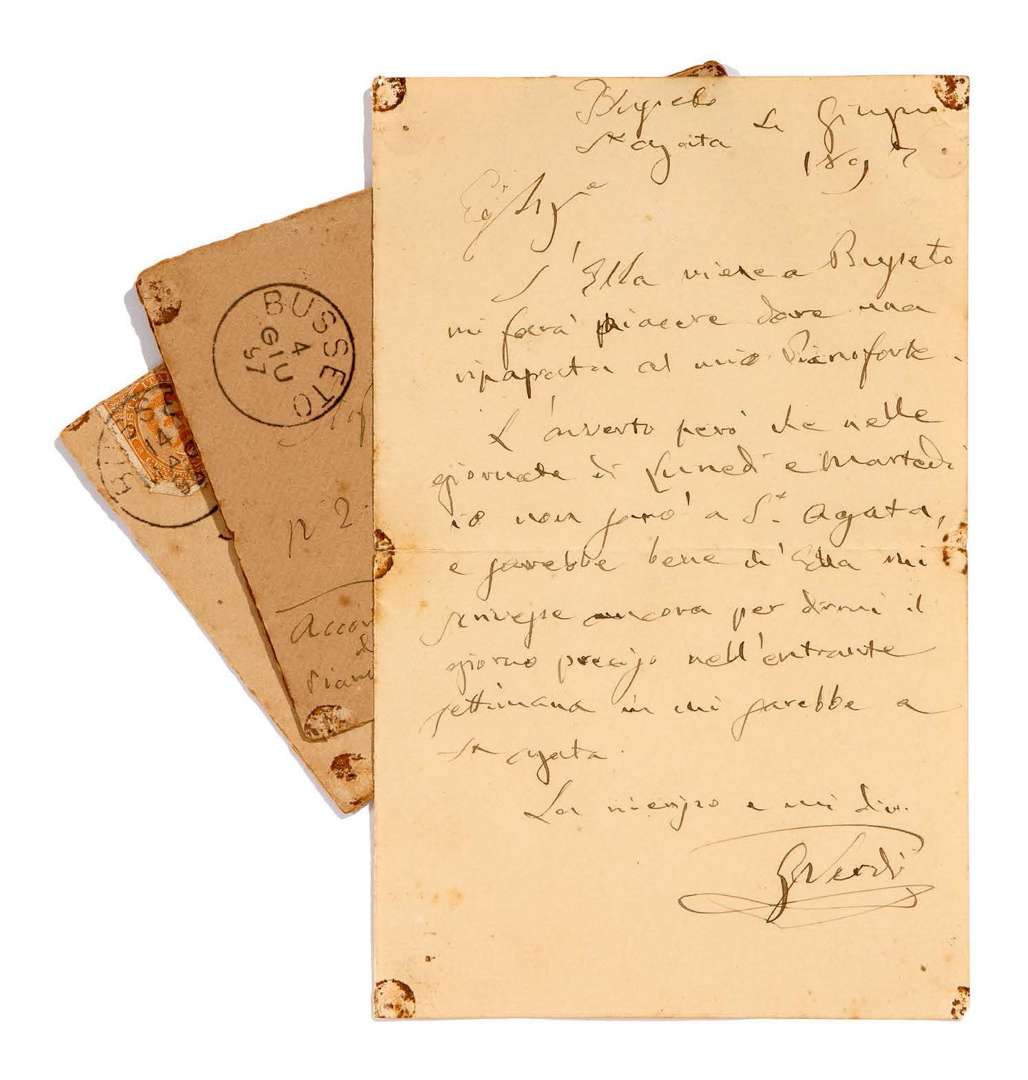 Busseto
St Agata 4 Giugno
1897
Eg Sigre
S'Ella viene a Busseto
mi farà piacere dare una
ripassata al mio Pianoforte.
L'avverto però che nelle
giornate di Lunedì e Martedì
io non sarò a St. Agata,
e sarebbe bene ch'Ella mi
scrivesse ancora per dirmi il
giorno preciso nell'entrante
settimana in cui sarebbe a
St Agata.
La riverisco e mi dico
GVerdi
BUSSETO
4
GIU
97
n 2
Accor
Pian
14